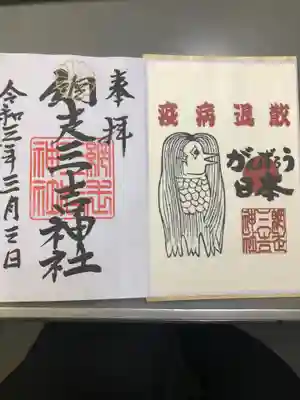 奉拝
網走三吉神社
網走
神社
令和三年三月三日
疫病退散
がんばろう
日本
網走
三吉
神社